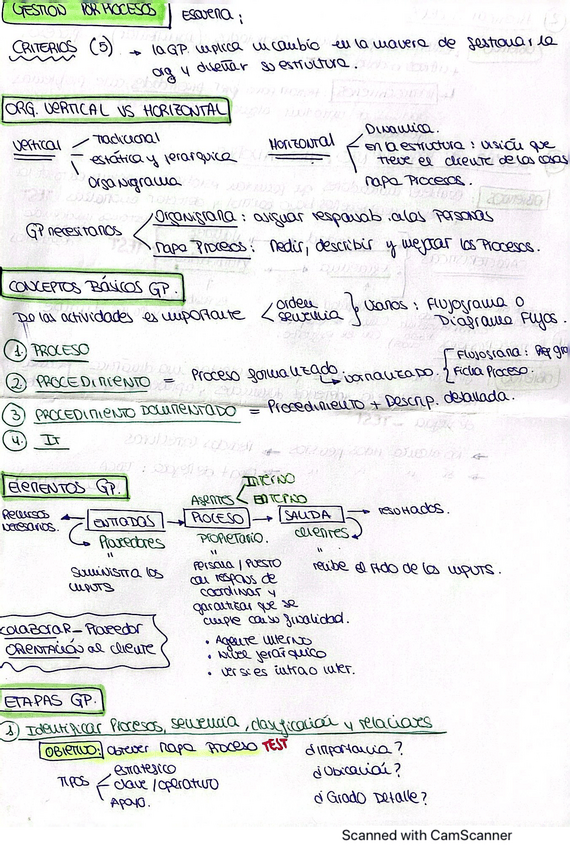 GESTION POR PROCESOS ESQUEMA:
CRITERIOS (5) → la GP. implica un cambio en la manera de gestionar la
org y diseñar su estructura.
ORG. VERTICAL VS HORIZONTAL
Vertical
Tradicional
estática y jerarquica
Organigrama
Horizontal
Dinamica.
en la estructura: visión que
tiene el cliente de las cosas
Mapa Procesos.
GP necesitamos
Organigrama: asignar responsab. a las Personas
Mapa Procesos: Medir, describir y mejorar los Procesos.
CONCEPTOS BÁSICOS GP.
De las actividades es importante
orden
secuencia
usamos: Flujograma o
Diagrama Flujos.
1. PROCESO
2. PROCEDIMIENTO = Proceso formalizado
↳ normalizado.
Flujograma:
Ficha Proceso.
3 PROCEDIMIENTO DOCUMENTADO = Procedimiento + Descrip. detallada.
4. IT
ELEMENTOS GP.
AGENTES
INTERNO
EXTERNO
Recursos
necesarios.
← ENTRADAS → PROCESO → SALIDA → resultados.
Proveedores
"
suministra los
inputs
Propietario.
"
Persona / Puesto
con respons de
coordinar y
garantizar que se
cumple con su finalidad.
• Agente interno
• Nivel jerárquico
clientes
"
recibe el Pdo de los inputs.
COLABORAR - Proveedor
ORIENTACIÓN al cliente
ETAPAS GP.
1 Identificar Procesos, secuencia, clasificación y relaciones
OBJETIVO: obtener Mapa Proceso TEST
TIPOS
estratégico
clave / operativo
Apoyo.
¿Importancia?
¿Ubicación?
¿Grado Detalle?
Scanned with CamScanner